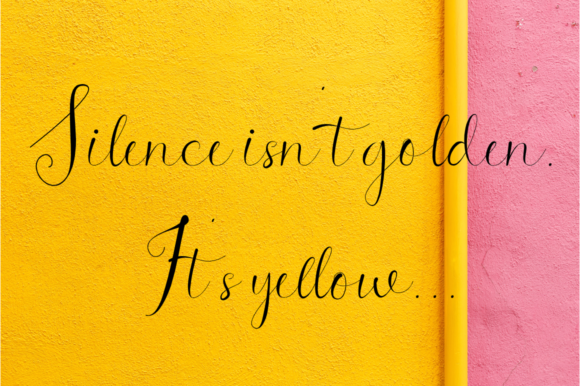 Silence isn't golden.
It's yellow...